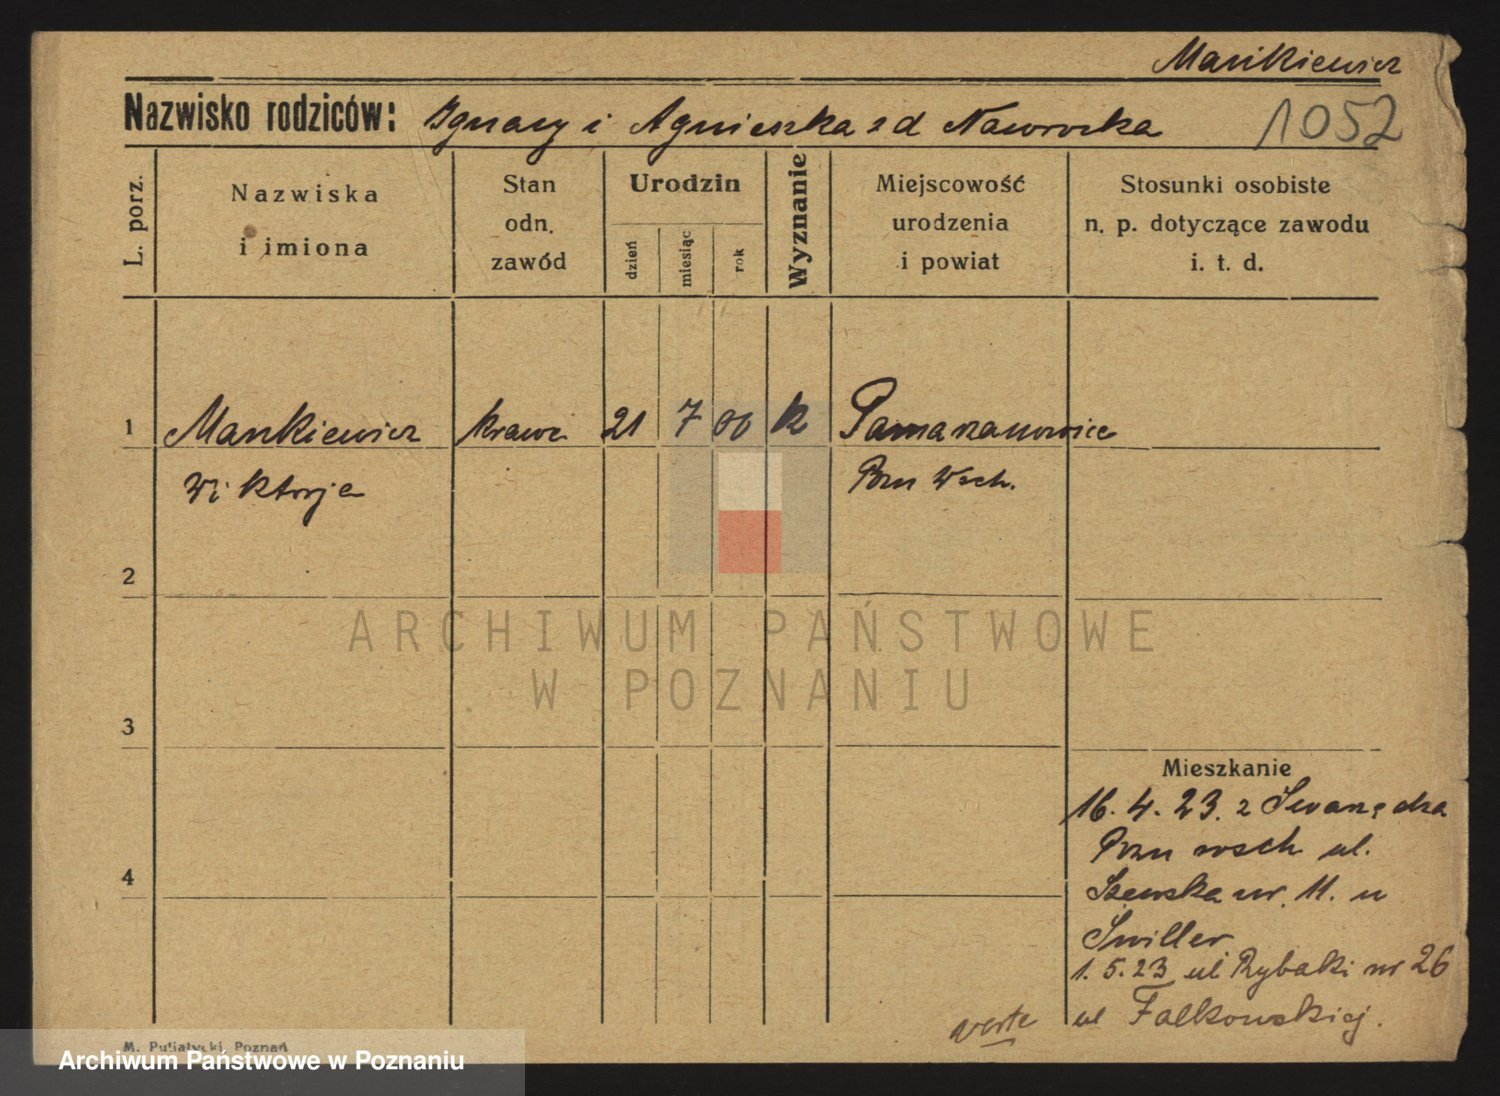 Mankiewicz
Nazwisko rodziców: Ignacy i Agnieszka z d Nawrocka
1052
L. porz.
Nazwiska
i imiona
Stan
odn.
zawód
Urodzin
dzień
miesiąc
rok
Wyznanie
Miejscowość
urodzenia
i powiat
Stosunki osobiste
n. p. dotyczące zawodu
i. t. d.
1 Mankiewicz krawc 21 7 00 k
Wiktorja Pozn Wsch.
2
ARCHIWUM PAŃSTWOWE
W POZNANIU
3
Mieszkanie
16. 4. 23. z
Pozn wsch ul.
4
Szewska nr. 11. u
1. 5. 23 ul Rybaki nr 26
Falkowskiej.
verte
M. Putiatycki, Poznań
Archiwum Państwowe w Poznaniu